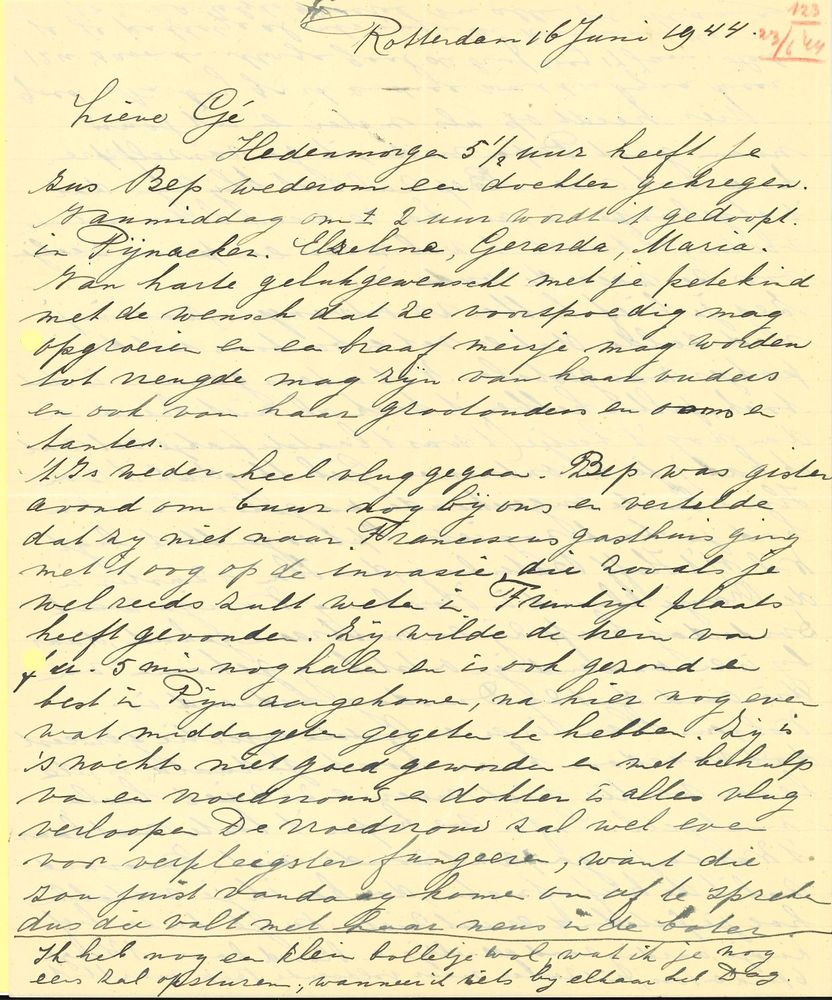 123
23/6 '44
Rotterdam 16 Juni 1944.
Lieve Gé
Hedenmorgen 5 1/2 uur heeft je
zus Bep wederom een dochter gekregen.
Vanmiddag om ± 2 uur wordt 't gedoopt.
in Pijnacker. Elzelina, Gerarda, Maria.
Van harte gelukgewenscht met je petekind
met de wensch dat ze voorspoedig mag
opgroeien en een braaf meisje mag worden
tot vreugde mag zijn van haar ouders
en ook van haar grootouders en ooms en
tantes.
't Is weder heel vlug gegaan. Bep was gister
avond om 6 uur nog bij ons en vertelde
dat zij niet naar Franciscus gasthuis ging
met 't oog op de invasie, die zooals je
wel reeds zult weten in Frankrijk plaats
heeft gevonden. Zij wilde de trein van
7 u. 5 min nog halen en is ook gezond en
best in Pijn aangekomen, na hier nog even
wat middageten gegeten te hebben. Zij is
's nachts niet goed geworden en met behulp
van en vroedvrouw en dokter is alles vlug
verloopen De vroedvrouw zal wel even
voor verpleegster fungeeren, want die
zou juist vandaag komen om af te spreken
dus die valt met haar neus in de boter.
Ik heb nog een klein bolletje wol, wat ik je nog
eens zal opsturen, wanneer ik iets bij elkaar heb Dag.